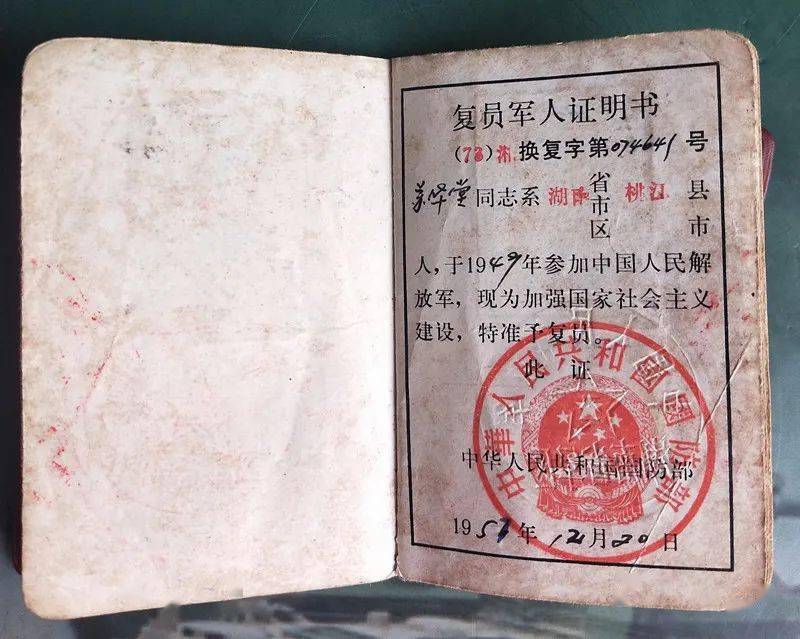 复员军人证明书
(73)换复字第074641号
堂同志系湖南省市区桃江县市
人,于1949年参加中国人民解
放军,现为加强国家社会主义
建设,特准予复员。
此证
中华人民共和国国防部
中华人民共和國國防部
195年12月20日